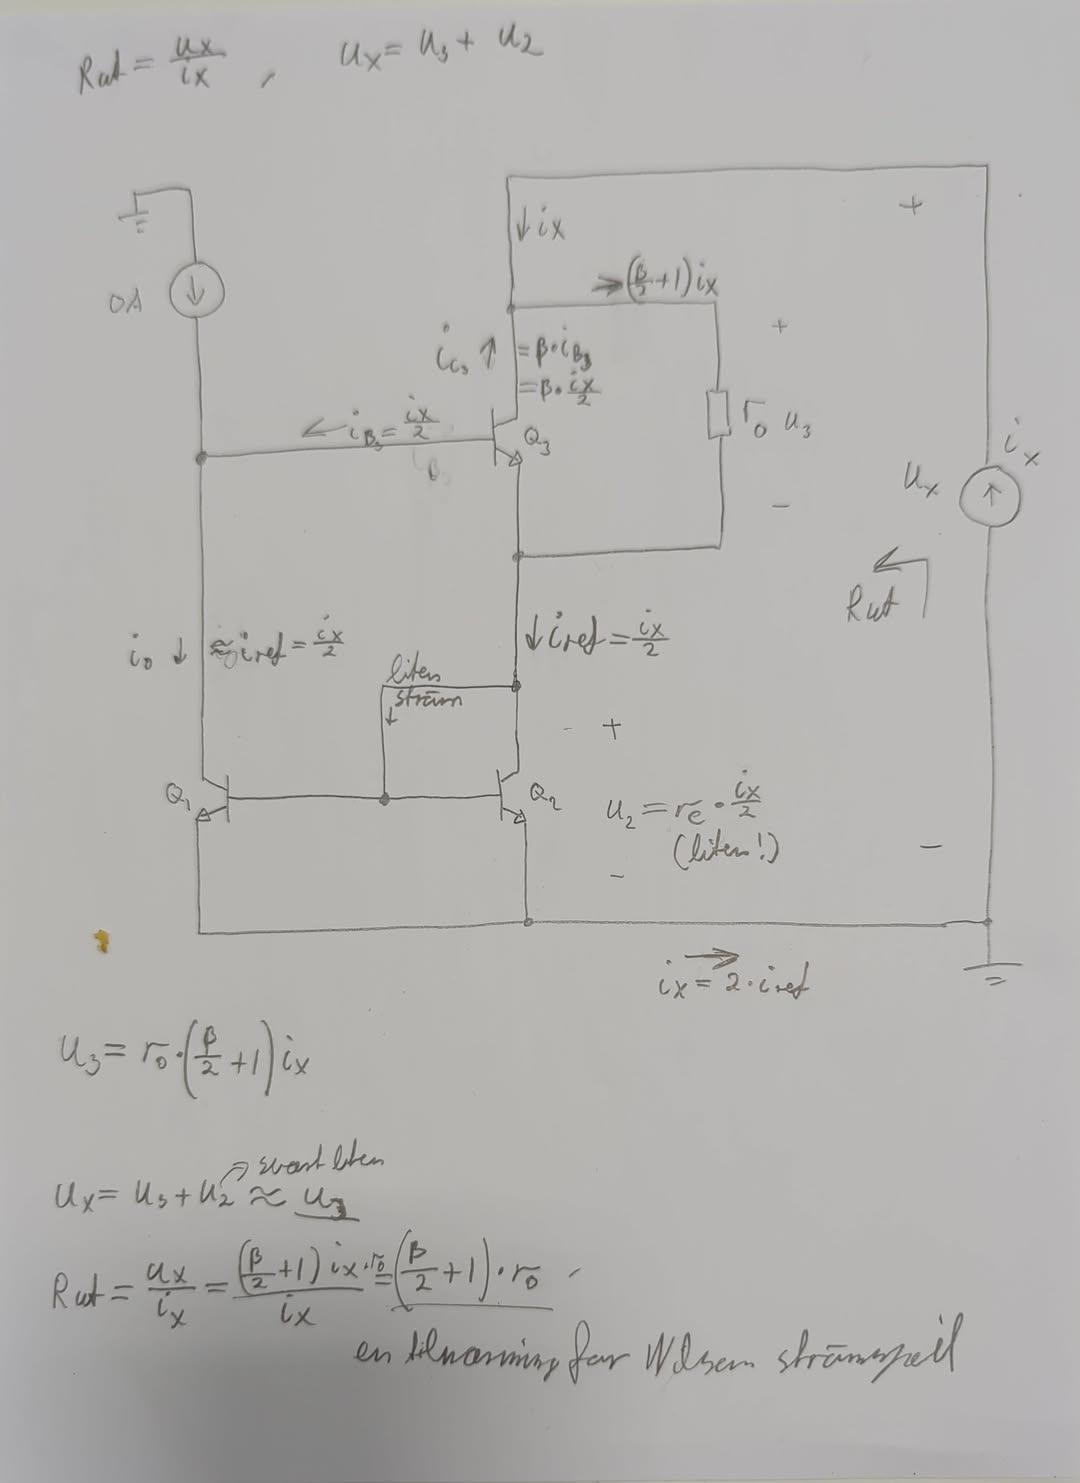 Rut = ux/ix , ux = u3 + u2
↓ ix
+
→ (β/2 + 1) ix
0A
+
ic3 ↑ = β·iB3
= β·ix/2
← iB3 = ix/2
Q3
ro u3
ix
iB
ux
-
Rut
io ↓ ≈ iref = ix/2
↓ iref = ix/2
liten
ström
↓
- +
Q1
Q2
u2 = re · ix/2
(liten!)
-
-
ix = 2·iref
u3 = ro·(β/2 + 1) ix
→ svart liten
ux = u3 + u2 ≈ u3
Rut = ux/ix = (β/2 + 1) ix·ro / ix = (β/2 + 1)·ro
en tilnærming for Wilson strømspeil